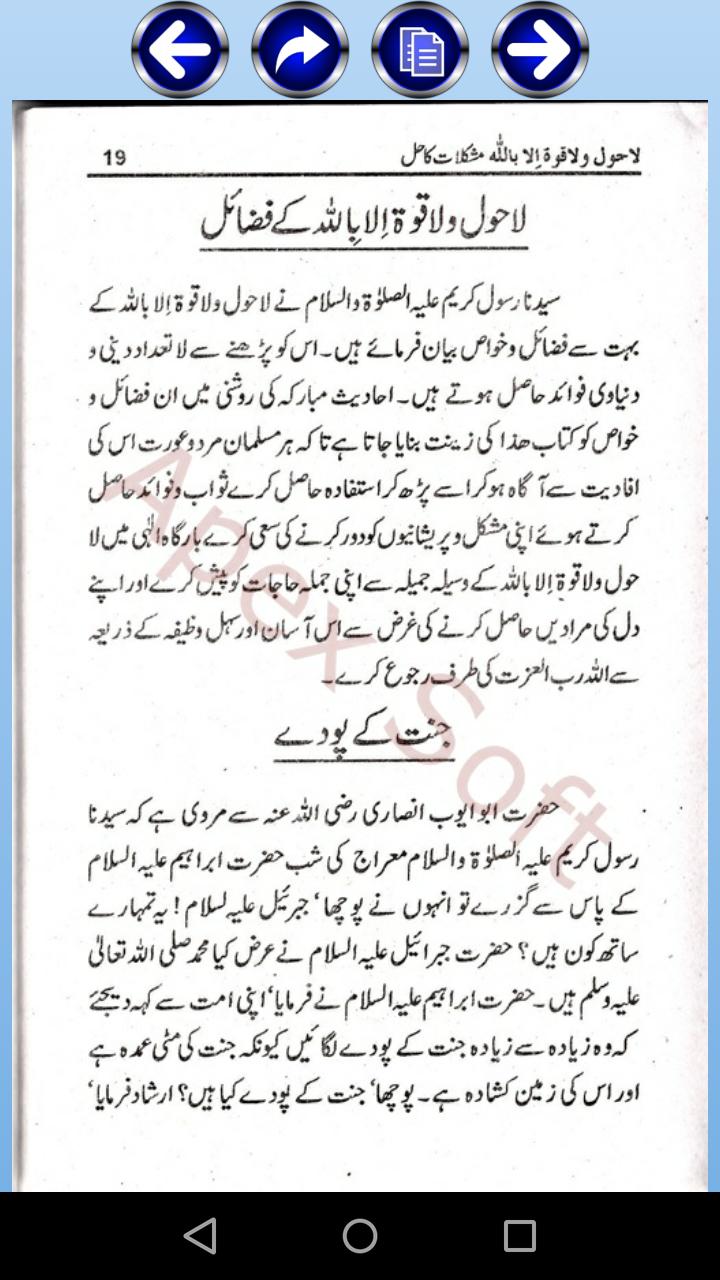 لاحول ولاقوة اِلا باللّٰه مشکلات کا حل 19
لاحول ولاقوۃ اِلا بِاللہ کے فضائل
سیدنا رسول کریم علیہ الصلوٰۃ والسلام نے لاحول ولاقوۃ اِلا باللہ کے
بہت سے فضائل وخواص بیان فرمائے ہیں۔ اس کو پڑھنے سے لاتعداد دینی و
دنیاوی فوائد حاصل ہوتے ہیں۔ احادیث مبارکہ کی روشنی میں ان فضائل و
خواص کو کتاب ھذا کی زینت بنایا جاتا ہے تاکہ ہر مسلمان مرد وعورت اس کی
افادیت سے آگاہ ہوکر اسے پڑھ کر استفادہ حاصل کرے ثواب وفوائد حاصل
کرتے ہوئے اپنی مشکل و پریشانیوں کو دور کرنے کی سعی کرے بارگاہ الٰہی میں لا
حول ولاقوۃ اِلا باللہ کے وسیلہ جمیلہ سے اپنی جملہ حاجات کو پیش کرے اور اپنے
دل کی مرادیں حاصل کرنے کی غرض سے اس آسان اور سہل وظیفہ کے ذریعہ
سے اللہ رب العزت کی طرف رجوع کرے۔
جنت کے پودے
حضرت ابو ایوب انصاری رضی اللہ عنہ سے مروی ہے کہ سیدنا
رسول کریم علیہ الصلوٰۃ والسلام معراج کی شب حضرت ابراہیم علیہ السلام
کے پاس سے گزرے تو انہوں نے پوچھا‘ جبرئیل علیہ لسلام! یہ تمہارے
ساتھ کون ہیں؟ حضرت جبرائیل علیہ السلام نے عرض کیا محمد صلی اللہ تعالیٰ
علیہ وسلم ہیں۔ حضرت ابراہیم علیہ السلام نے فرمایا‘ اپنی امت سے کہہ دیجئے
کہ وہ زیادہ سے زیادہ جنت کے پودے لگائیں کیونکہ جنت کی مٹی عمدہ ہے
اور اس کی زمین کشادہ ہے۔ پوچھا‘ جنت کے پودے کیا ہیں؟ ارشاد فرمایا‘
Apex Soft